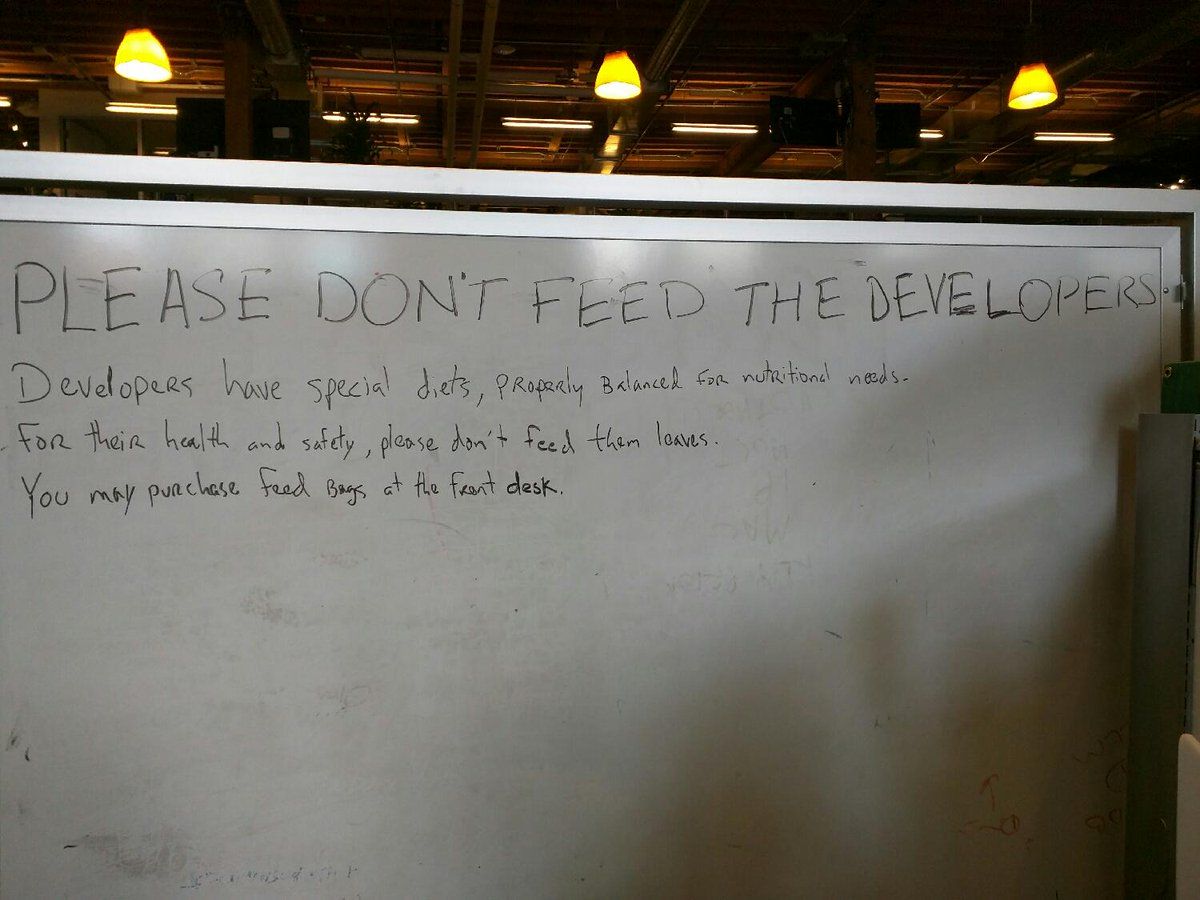 PLEASE DON'T FEED THE DEVELOPERS
Developers have special diets, properly Balanced for nutritional needs.
For their health and safety, please don't feed them leaves.
You may purchase feed Bags at the front desk.